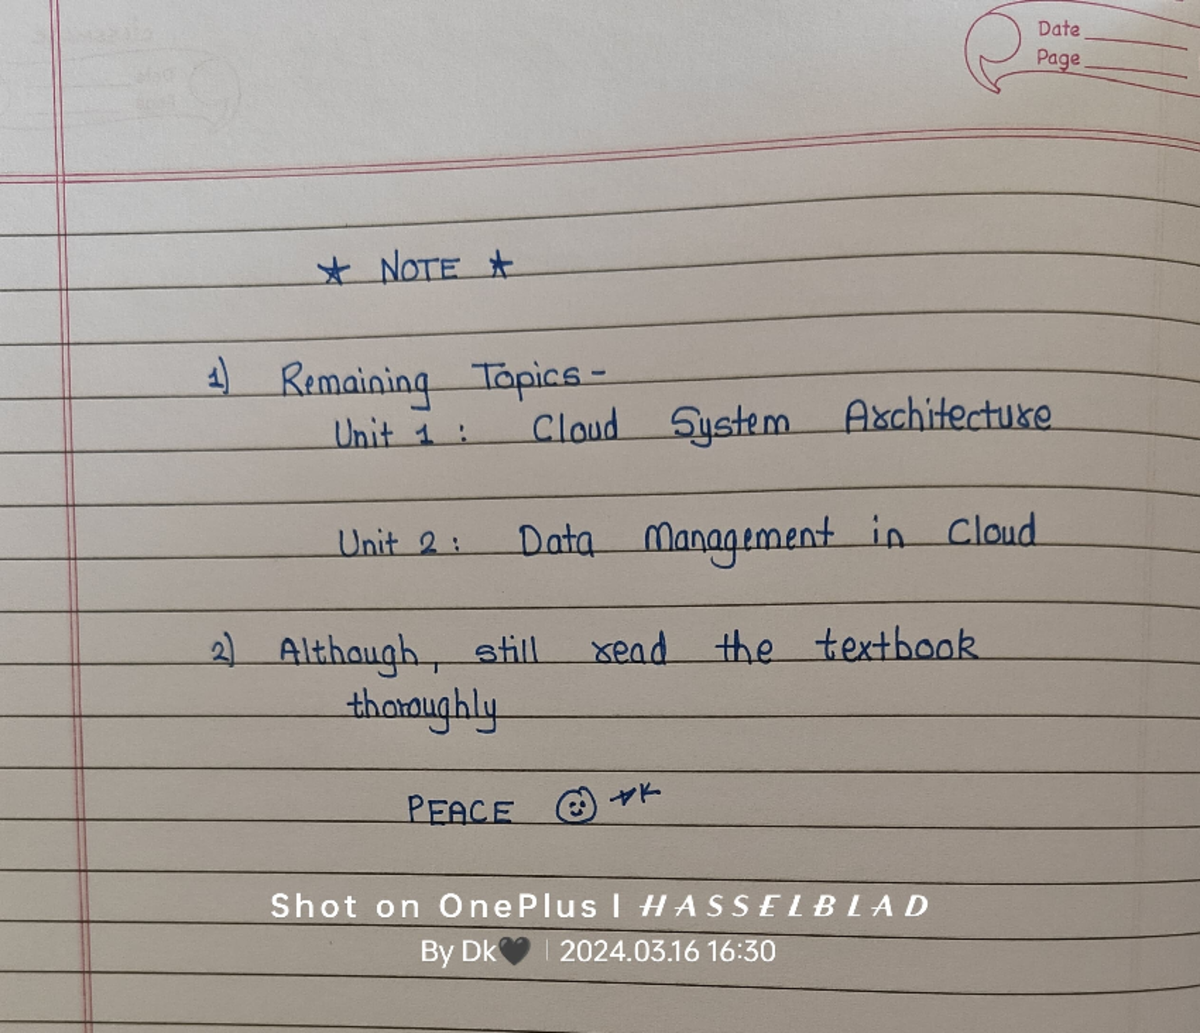 Date
Page
★ NOTE ★
1) Remaining Topics -
Unit 1 : Cloud System Architecture
Unit 2 : Data Management in Cloud
2) Although, still read the textbook
thoroughly
PEACE ☺
Shot on OnePlus | HASSELBLAD
By Dk🖤 | 2024.03.16 16:30